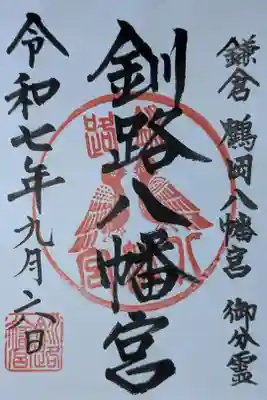 鎌倉 鶴岡八幡宮 御分霊
釧路八幡宮
令和七年九月六日